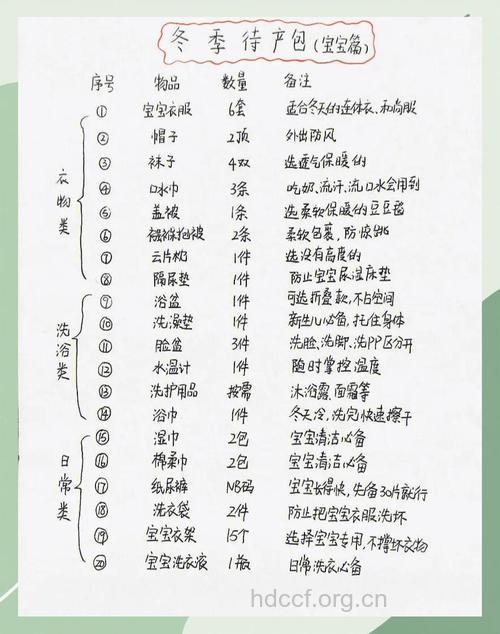 冬季待产包(宝宝篇)
序号 物品 数量 备注
① 宝宝衣服 6套 适合冬天的连体衣、和尚服
② 帽子 2顶 外出防风
③ 袜子 4双 选透气保暖的
④ 口水巾 3条 吃奶、流汗、流口水会用到
衣物类
⑤ 盖被 1条 选柔软保暖的豆豆毯
⑥ 襁褓抱被 2条 柔软包裹,防惊跳
⑦ 云片枕 1件 选没有高度的
⑧ 隔尿垫 1件 防止宝宝尿湿床垫
⑨ 浴盆 1件 可选折叠款,不占空间
⑩ 洗澡垫 1件 新生儿必备,托住身体
⑪ 脸盆 3件 洗脸、洗脚、洗PP区分开
洗浴类
⑫ 水温计 1件 随时掌控温度
⑬ 洗护用品 按需 沐浴露、面霜等
⑭ 浴巾 1件 冬天冷,洗完快速擦干
⑮ 湿巾 2包 宝宝清洁必备
⑯ 棉柔巾 2包 宝宝清洁必备
⑰ 纸尿裤 NB码 宝宝长得快,先备30片就行
日常类
⑱ 洗衣袋 2件 防止把宝宝衣服洗坏
⑲ 宝宝衣架 15个 选择宝宝专用,不撑坏衣物
⑳ 宝宝洗衣液 1瓶 日常洗衣必备
hdccf.org.cn